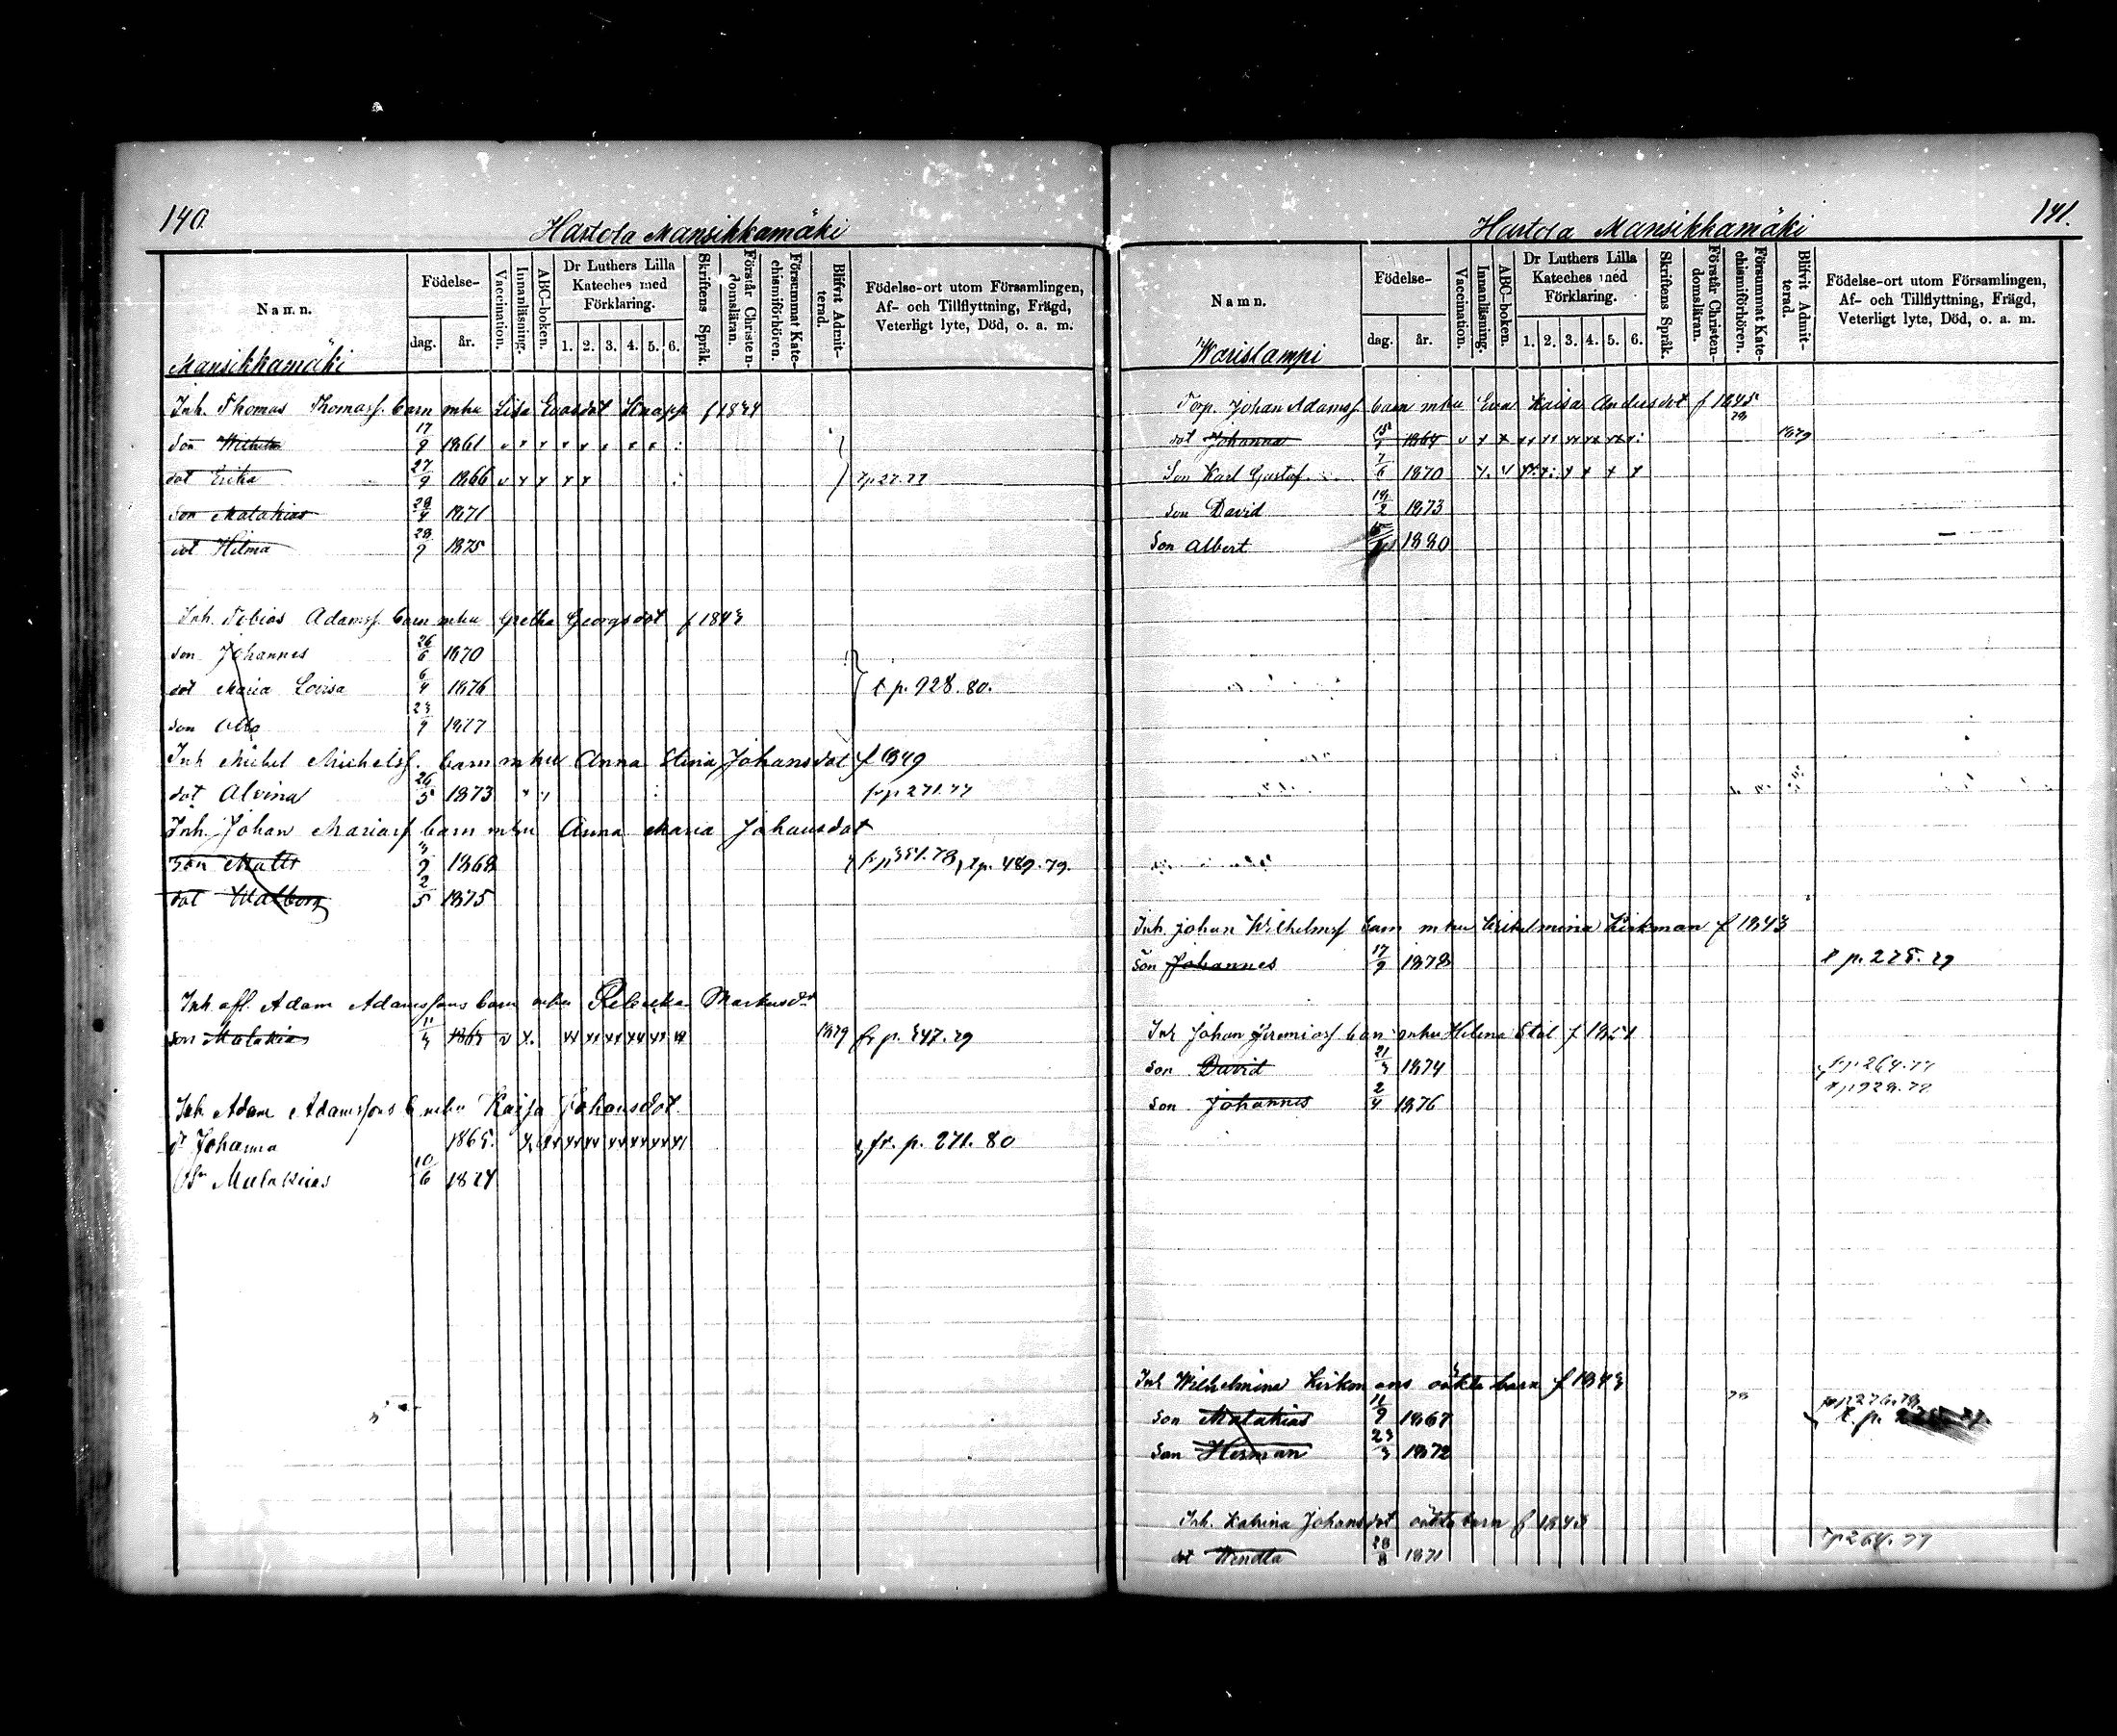 140.
Hartola Mansikkamäki
Namn.
Födelse-
dag.
år.
Vaccination.
Innanläsning.
ABC-boken.
Dr Luthers Lilla Kateches med Förklaring.
1. 2. 3. 4. 5. 6.
Skriftens Språk.
Förstår Christendomsläran.
Försummat Katechismiförhören.
Blifvit Admitterad.
Födelse-ort utom Församlingen,
Af- och Tillflyttning, Frägd,
Veterligt lyte, Död, o. a. m.
Mansikkamäki
Inh. Thomas Thomasf. barn mhu Lisa Evasdot Knapp f 1844
Son Wilhelm 17/9 1861
dot Erika 27/9 1866
Son Malakias 28/4 1871
dot Hilma 28/9 1875
Inh. Tobias Adamsf. barn mhu Gretha Georgsdot f 1843
Son Johannes 26/6 1870
dot Maria Lovisa 6/4 1876 t p. 928. 80.
Son Otto 23/9 1877
Inh Mikel Michelsf. barn mhu Anna Stina Johansdot f 1849
dot Alvina 26/5 1873 frp 271.77
Inh. Johan Mariasf barn mhu Anna Maria Johansdot
Son Matts 3/9 1868 frp 351.78, tp. 489.79.
dot Walborg 2/5 1875
Inh. afl. Adam Adamssons barn mhu Rebecka Markusdr
Son Malakias 11/4 1865 1879 fr p. 347.79
Inh Adam Adamssons b mhu Kaisa Johansdot.
dr Johanna 1865. fr. p. 271. 80
Sn Malakias 10/6 1874
141.
Hartola Mansikkamäki
Namn.
Födelse-
dag.
år.
Vaccination.
Innanläsning.
ABC-boken.
Dr Luthers Lilla Kateches med Förklaring.
1. 2. 3. 4. 5. 6.
Skriftens Språk.
Förstår Christendomsläran.
Försummat Katechismiförhören.
Blifvit Admitterad.
Födelse-ort utom Församlingen,
Af- och Tillflyttning, Frägd,
Veterligt lyte, Död, o. a. m.
Warislampi
Torp. Johan Adamsf. barn mhu Eva Kaisa Andersdot f 1845
dot Johanna 1864 78 1879
Son Karl Gustaf 7/6 1870
Son David 19/2 1873
Son Albert 1880
Inh. Johan Wilhelmsf barn mhu Wilhelmina Kirkman f 1843
Son Johannes 17/9 1878 t p. 275.79
Inh Johan Jeremiasf barn mhu Helena Stål f 1851
Son David 21/3 1874 frp 264.77
Son Johannes 2/4 1876 t p 928.78
Inh Wilhelmina Kirkmans oäkta barn f 1843
Son Malakias 1867 78 frp 276.78
Son Herman 23/3 1872 t. p.
Inh. Katrina Johansdot oäkta barn f 1843
dot Wendla 28/8 1871 tp 264.77